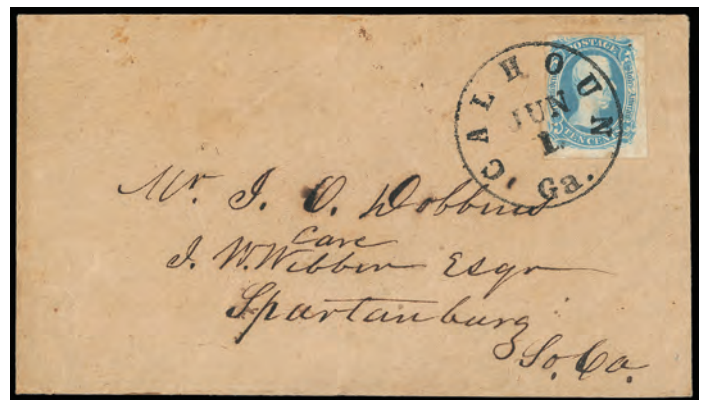 CALHOUN
JUN
1
Ga.
POSTAGE
TEN CENTS
Mr. J. O. Dobbins
Care
J. W. Webber Esqr
Spartanburg
So. Ca.